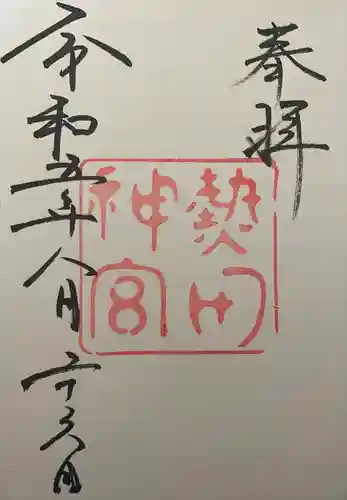 奉拝
熱田
神宮
令和五年八月二十六日